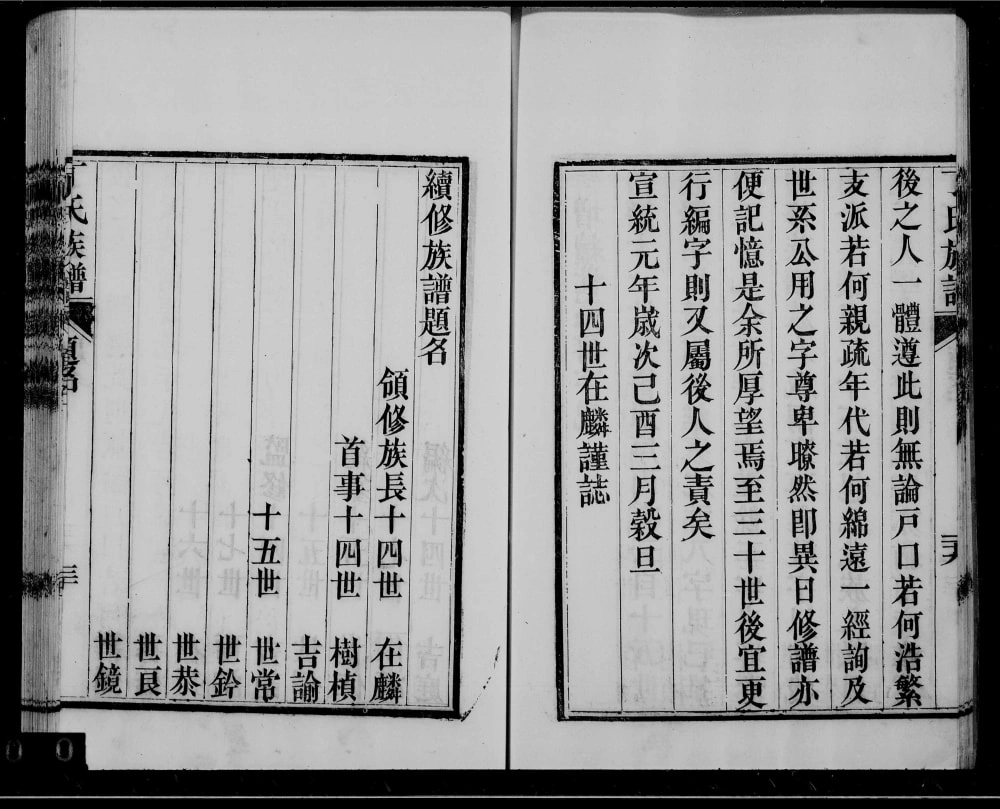 後之人一體遵此則無論戸口若何浩繁
支派若何親疏年代若何綿遠 一經詢及
世系公用之字尊卑瞭然卽異日修譜亦
便記憶是余所厚望焉至三十世後宜更
行編字則又屬後人之責矣
宣統元年歲次己酉三月穀旦
十四世在麟謹誌
續修族譜題名
領修族長十四世 在麟
首事十四世 樹楨
吉諭
十五世 世常
世鈐
世恭
世良
世鏡
氏族譜
題名